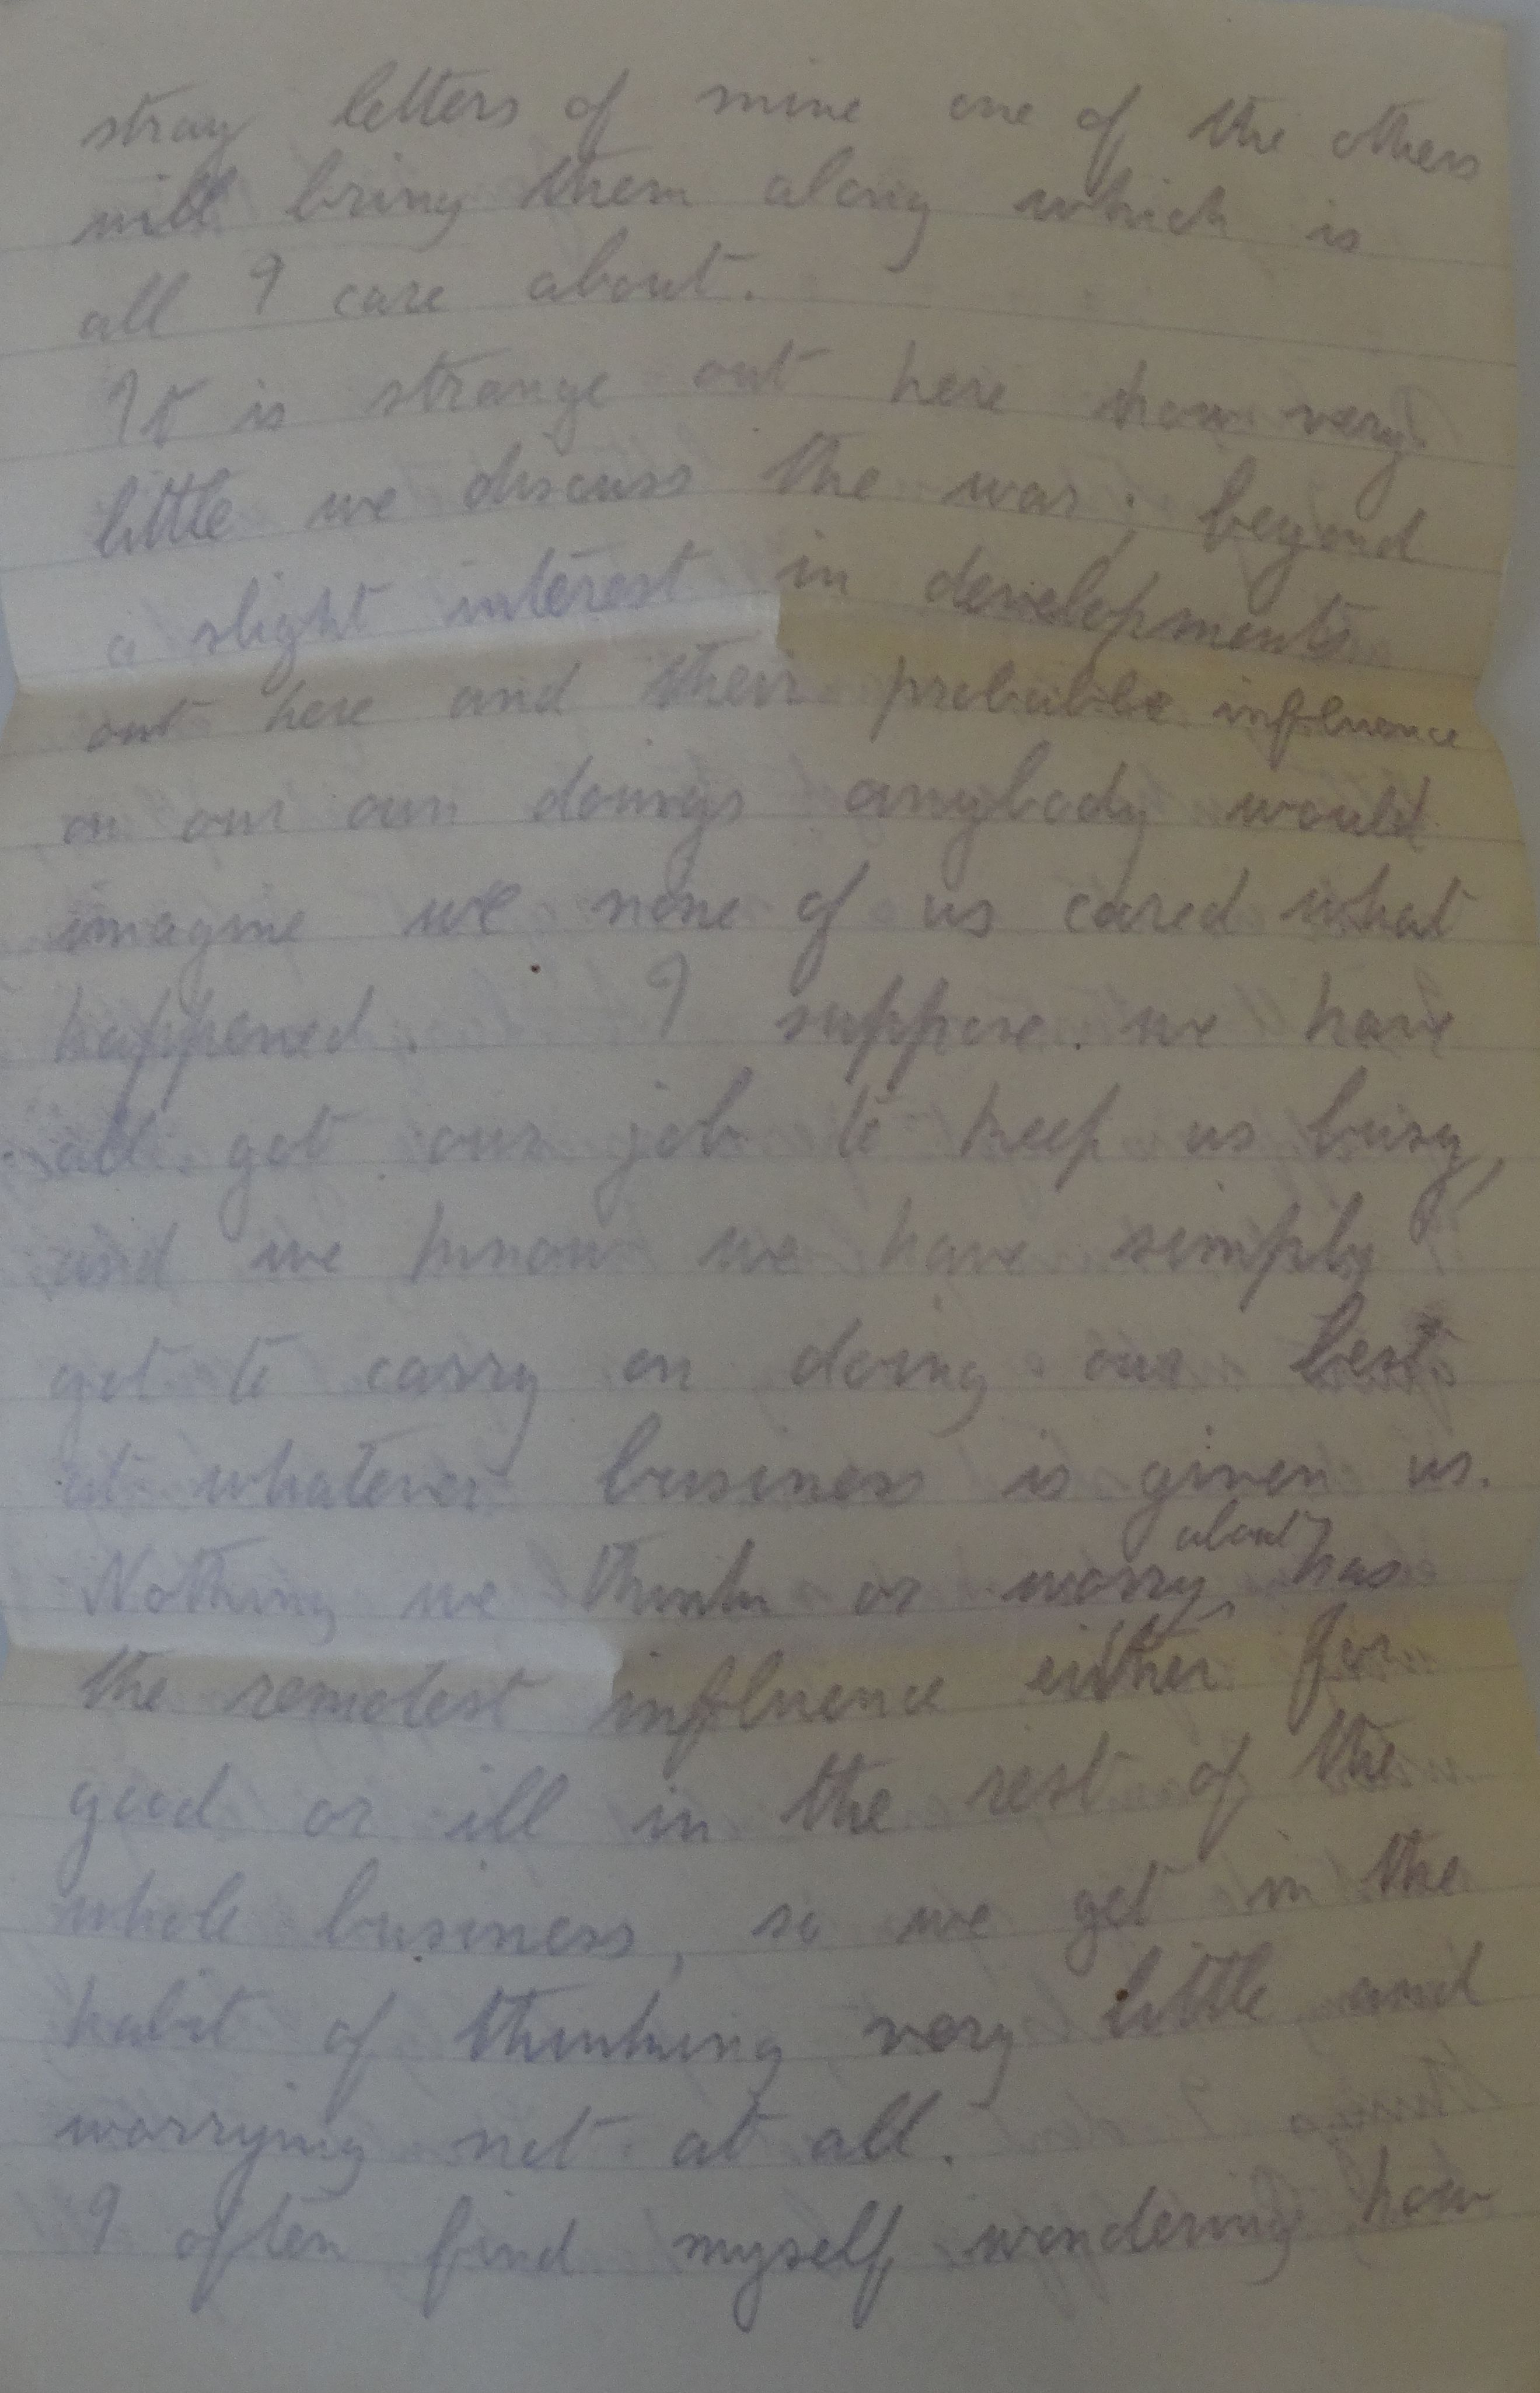 stray letters of mine one of the others
will bring them along which is
all I care about.
It is strange out here how very
little we discuss the war; beyond
a slight interest in developments
out here and their probable influence
on our own doings anybody would
imagine we none of us cared what
happened. I suppose we have
all got our job to keep us busy,
and we know we have simply
got to carry on doing our best
at whatever business is given us.
Nothing we think or worry about has
the remotest influence either for
good or ill in the rest of the
whole business, so we get in the
habit of thinking very little and
worrying not at all.
I often find myself wondering how